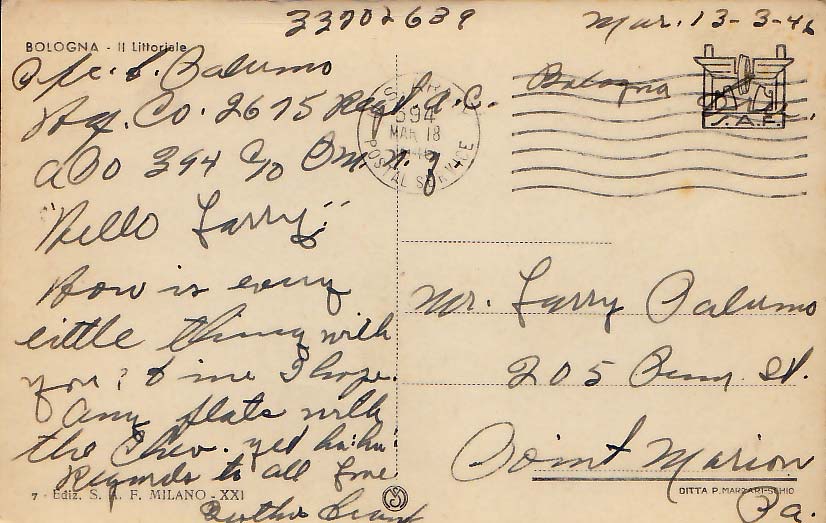 33702639
Mar. 13-3-46
BOLOGNA - Il Littoriale
Pfc. S. Palumo
Hq. Co. 2675 Regt. A.C.
APO 394 c/o P.M. N.Y.
Bologna
S.A.F.
594
MAR 18
POSTAL SERVICE
"Hello Larry":
How is every
little thing with
you? & me I hope.
Any flats with
the Chev. yet ha! ha!
Regards to all fine
Mr. Larry Palumo
205 Penn St.
Point Marion
Pa.
7 - Ediz. S. A. F. MILANO - XXI
DITTA P. MARZARI-SCHIO